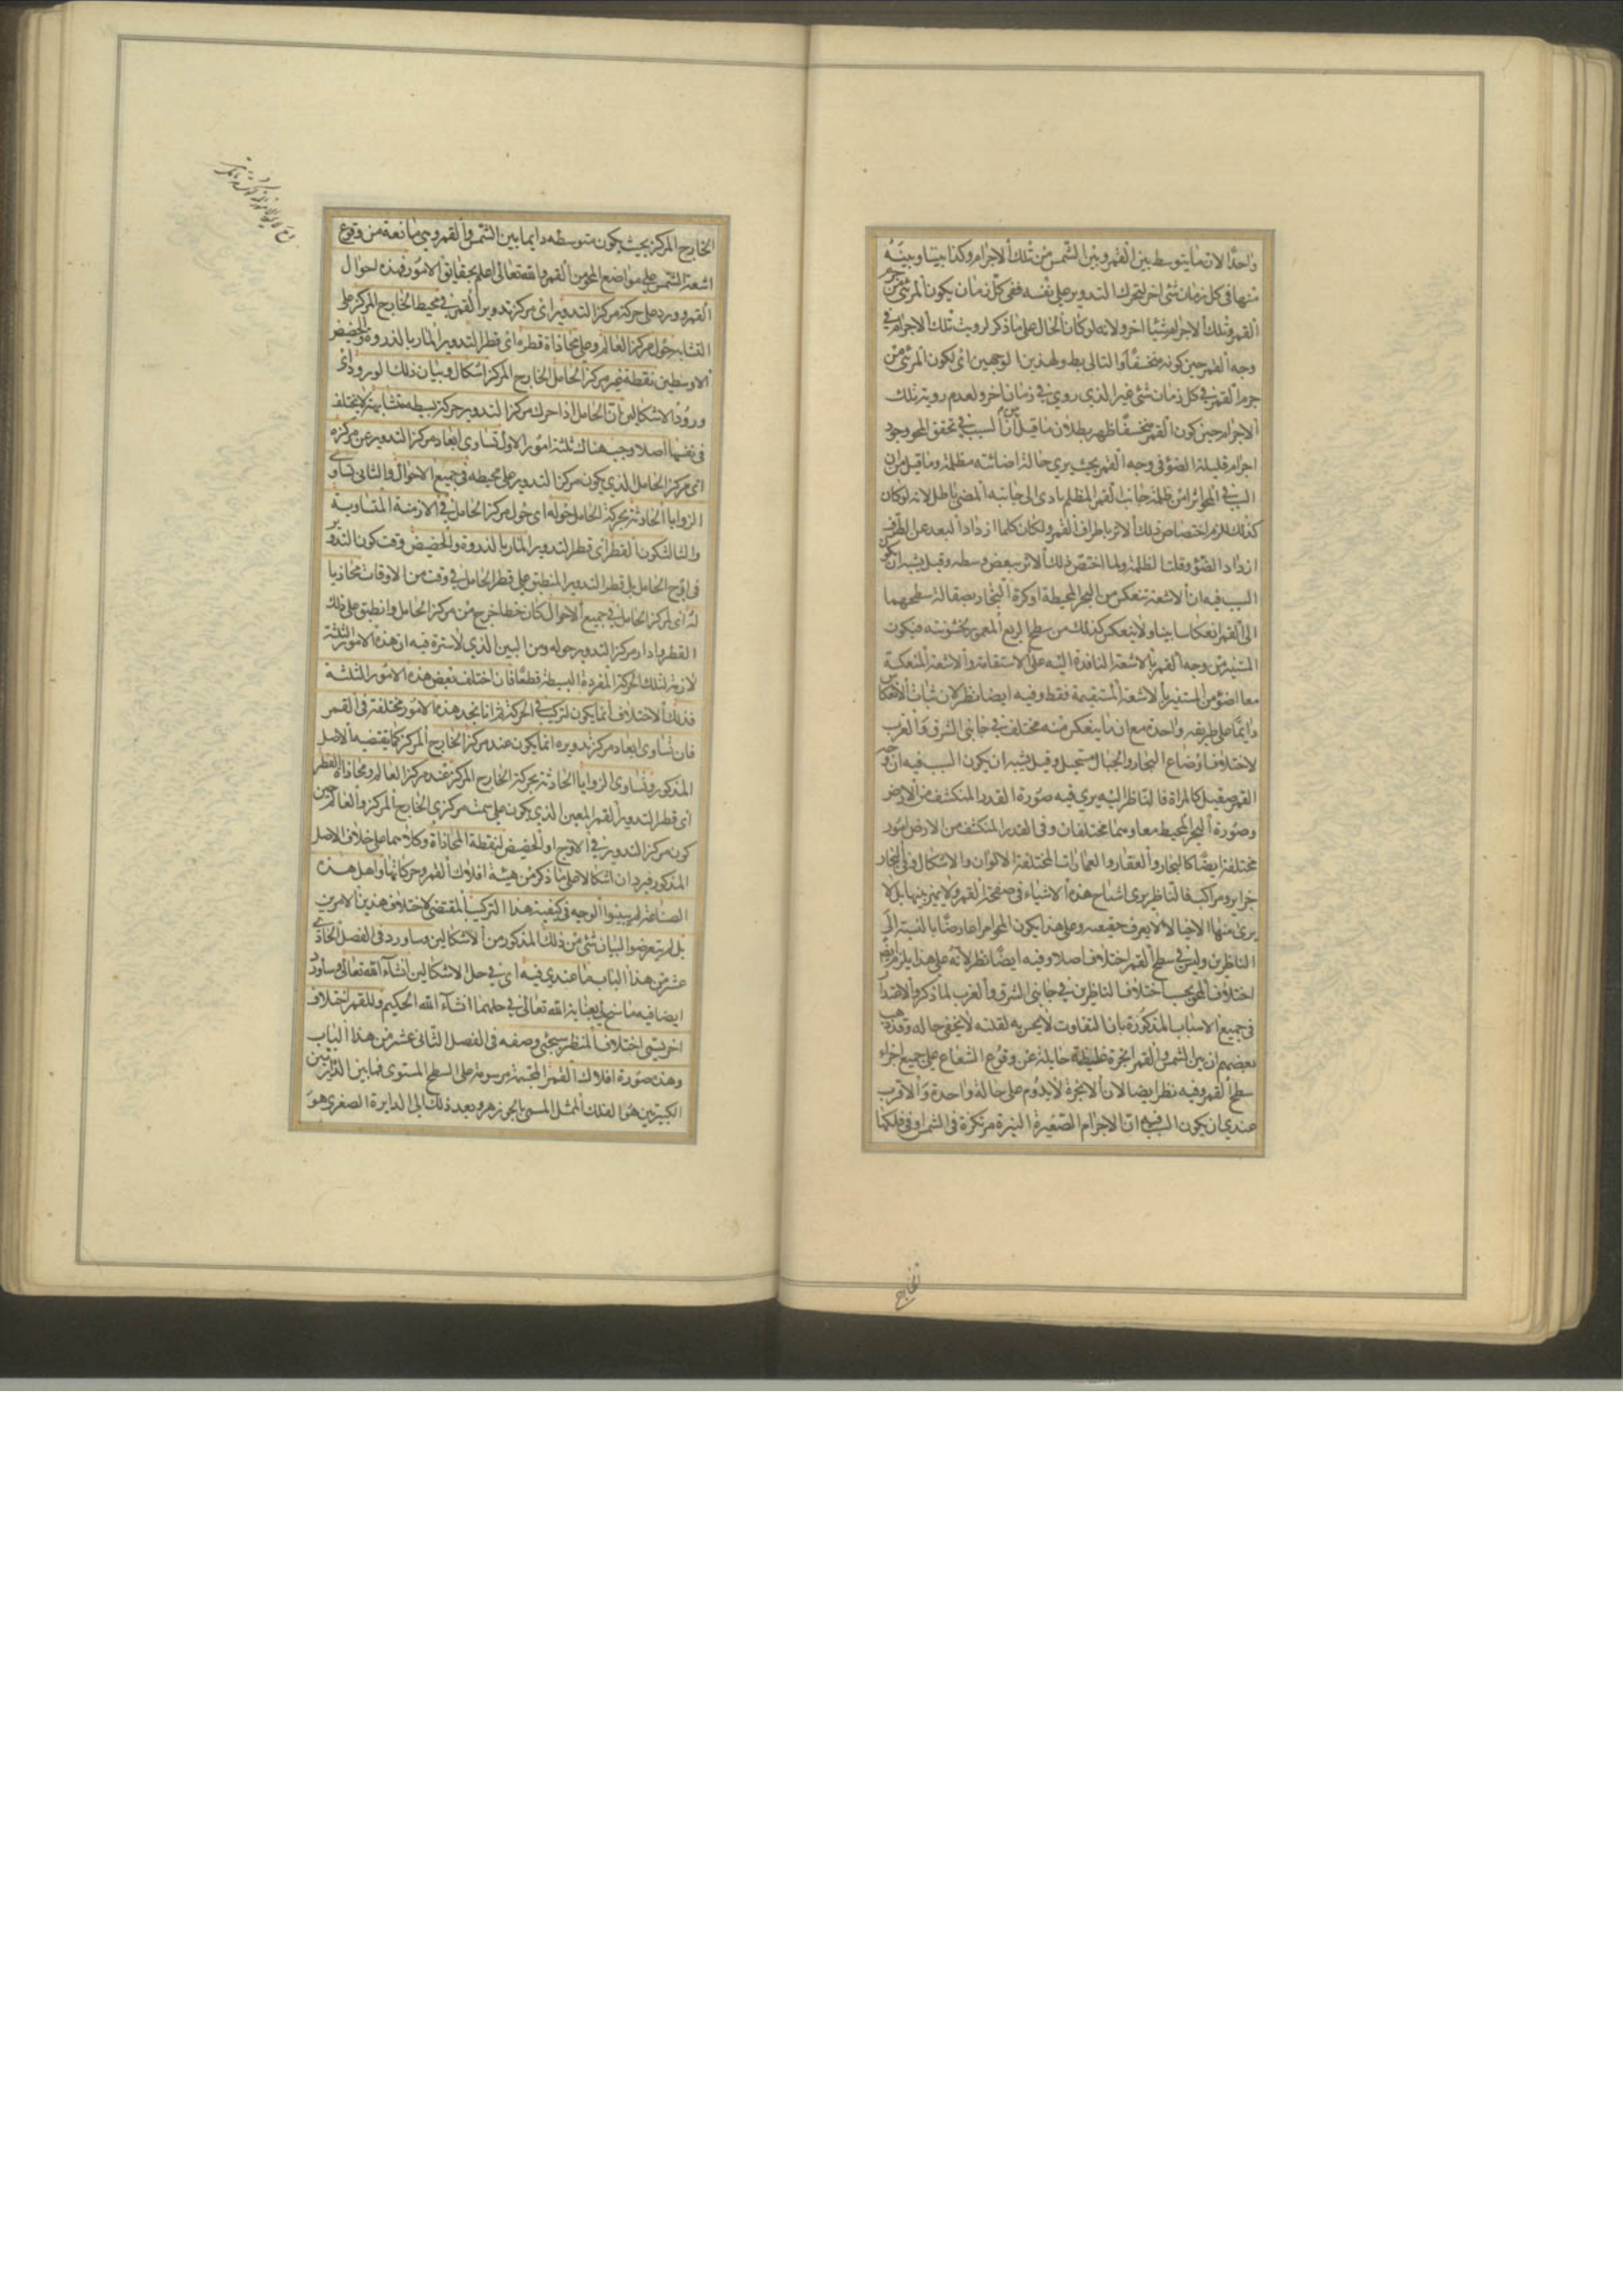 واحدًا لان ما يتوسط بين القمر وبين الشمس من تلك الاجرام وكذا بيننا وبينه
منها فى كل زمان شئ اخر لتحرك التدوير على نفسه ففى كل زمان يكون المرئى من جرم
القمر وتلك الاجرام شيئا اخر ولانه لو كان الحال على ما ذكر لرويت تلك الاجرام فى
وجه القمر حين كونه منخسفًا والتالى بط ولهذين الوجهين اى لكون المرئى من
جرم القمر فى كل زمان شئ غير الذي روي فى زمان اخر ولعدم روية تلك
الاجرام حين كون القمر منخسفًا ظهر بطلان ما قيل من أن السبب فى تحقق المحو وجود
اجرام قليلة الضوء فى وجه القمر بحيث يري حالة اضائته مظلمة وما قيل من ان
السبب فى المحو اثر من ظلمة جانب القمر المظلم بادى الى جانبه المضئ باطل لانه لو كان
كذلك لزم اختصاص ذلك الاثر باطراف القمر ولكان كلما ازداد البعد عن الطرف
ازداد الضوء وقلت الظلمة ولما اختص ذلك الاثر ببعض وسطه وقيل يشبه ان يكون
السبب فيه ان الاشعة تنعكس من البحر المحيطة او كرة البخار بصقالة سطحهما
الى القمر انعكاسا بينا ولا ينعكس كذلك من سطح الربع المعمور لخشونته فيكون
المستنير من وجه القمر بالاشعة النافذة اليه على الاستقامة والاشعة المنعكسة
معا اضوء من المستنير بالاشعة المستقيمة فقط وفيه ايضا نظر لان ثبات الانعكاس
دايمًا على طريقه واحدة مع ان ما ينعكس منه مختلف فى جانبى الشرق والغرب
لاختلاف اوضاع البحار والجبال مستحيل وقيل يشبه ان يكون السبب فيه ان وجه
القمر صقيل كالمراة فالناظر اليه يري فيه صورة القدر المنكشف من الارض
وصورة البحر المحيط معا وهما مختلفان وفى القدر المنكشف من الارض امور
مختلفة ايضًا كالبحار والعقار والعمارات المختلفة الالوان والاشكال وفى البحار
جزاير ومراكب فالناظر يرى اشباح هذه الاشياء فى صفحة القمر ولا يميز بينها بل لا
يرى منها الا خيالا لا يعرف حقيقته وعلى هذا يكون المحو امرا عارضًا بالنسبة الى
الناظرين وليس فى سطح القمر اختلاف اصلا وفيه ايضًا نظر لانه على هذا يلزم ايضا
اختلاف المحو بحسب اختلاف الناظرين فى جانبى الشرق والغرب لما ذكر والاعتذار
فى جميع الاسباب المذكورة بان التفاوت لا يحس به لقلته لا يخفى حاله وقد ذهب
بعضهم ان بين الشمس والقمر ابخرة غليظة حايلة عن وقوع الشعاع على جميع اجزاء
سطح القمر وفيه نظر ايضا لان الابخرة لا يدوم على حالة واحدة والاقرب
عندي ان يكون السبب فيه ان الاجرام الصغيرة النيرة مرتكزة فى الشمس او فى فلكها
الخارج
الخارج المركز بحيث يكون متوسطه دايما بين الشمس والقمر وهى مانعة من وقوع
اشعة الشمس على مواضع المحو من القمر والله تعالى اعلم بحقايق الامور فهذه احوال
القمر وورد على حركة مركز التدوير اى مركز تدوير القمر فى محيط الخارج المركز على
التشابه حول مركز العالم وعلى محاذاة قطره اى قطر التدوير المار بالذروة والحضيض
الاوسطين نقطة غير مركز الحامل الخارج المركز اشكال وبيان ذلك الورود اى
ورود الاشكالين ان الحامل اذا حرك مركز التدوير حركة بسيطه متشابهة لا يختلف
فى نفسها اصلا وجب هناك ثلثة امور الاول تساوى ابعاد مركز التدوير عن مركزه
اى مركز الحامل الذي يكون مركز التدوير على محيطه فى جميع الاحوال والثانى تساوى
الزوايا الحادثة بحركة الحامل حوله اى حول مركز الحامل فى الازمنة المتساوية
والثالث كون القطر اى قطر التدوير المار بالذروة والحضيض وقت كون التدوير
فى اوج الحامل بل قطر التدوير المنطبق على قطر الحامل فى وقت من الاوقات محاذيا
له اى لمركز الحامل فى جميع الاحوال كان خطا خرج من مركز الحامل وانطبق على ذلك
القطر وادار مركز التدوير حوله ومن البين الذي لا سترة فيه ان هذه الامور الثلثة
لازمة لتلك الحركة المفردة البسيطة قطعًا فان اختلف بعض هذه الامور الثلثة
فذلك الاختلاف انما يكون لتركيب فى الحركة ثم انا نجد هذه الامور مختلفة فى القمر
فان تساوى ابعاد مركز تدويره انما يكون عند مركز الخارج المركز كما يقتضيه الاصل
المذكور وتساوى الزوايا الحادثة بحركة الخارج المركز عند مركز العالم ومحاذاة القطر
اى قطر التدوير القمر المعين الذي يكون على سمت مركزي الخارج المركز والعالم حين
كون مركز التدوير فى الاوج او الحضيض لنقطة المحاذاة وكلاهما على خلاف الاصل
المذكور فيردان اشكالا على ما ذكر من هيئة افلاك القمر وحركاتها واهل هذه
الصناعة لم يبينوا الوجه فى كيفية هذا التركيب المقتضى لاختلاف هذين الامرين
بل لم يتعرضوا لبيان شئ من ذلك المذكور من الاشكالين وساورد فى الفصل الحادى
عشر من هذا الباب ما عندي فيه اى فى حل الاشكالين انشاء الله تعالى وساورد
ايضا فيه ما سنح لي بعناية الله تعالى فى حلهما انشاء الله الحكيم وللقمر اختلاف
اخر يسمى اختلاف المنظر سيجئ وصفه فى الفصل الثانى عشر من هذا الباب
وهذه صورة افلاك القمر المجسمة مرسومة على السطح المستوى فما بين الدايرتين
الكبيرتين هو الفلك الممثل المسمى بالجوزهر وبعد ذلك الى الدايرة الصغرى هو